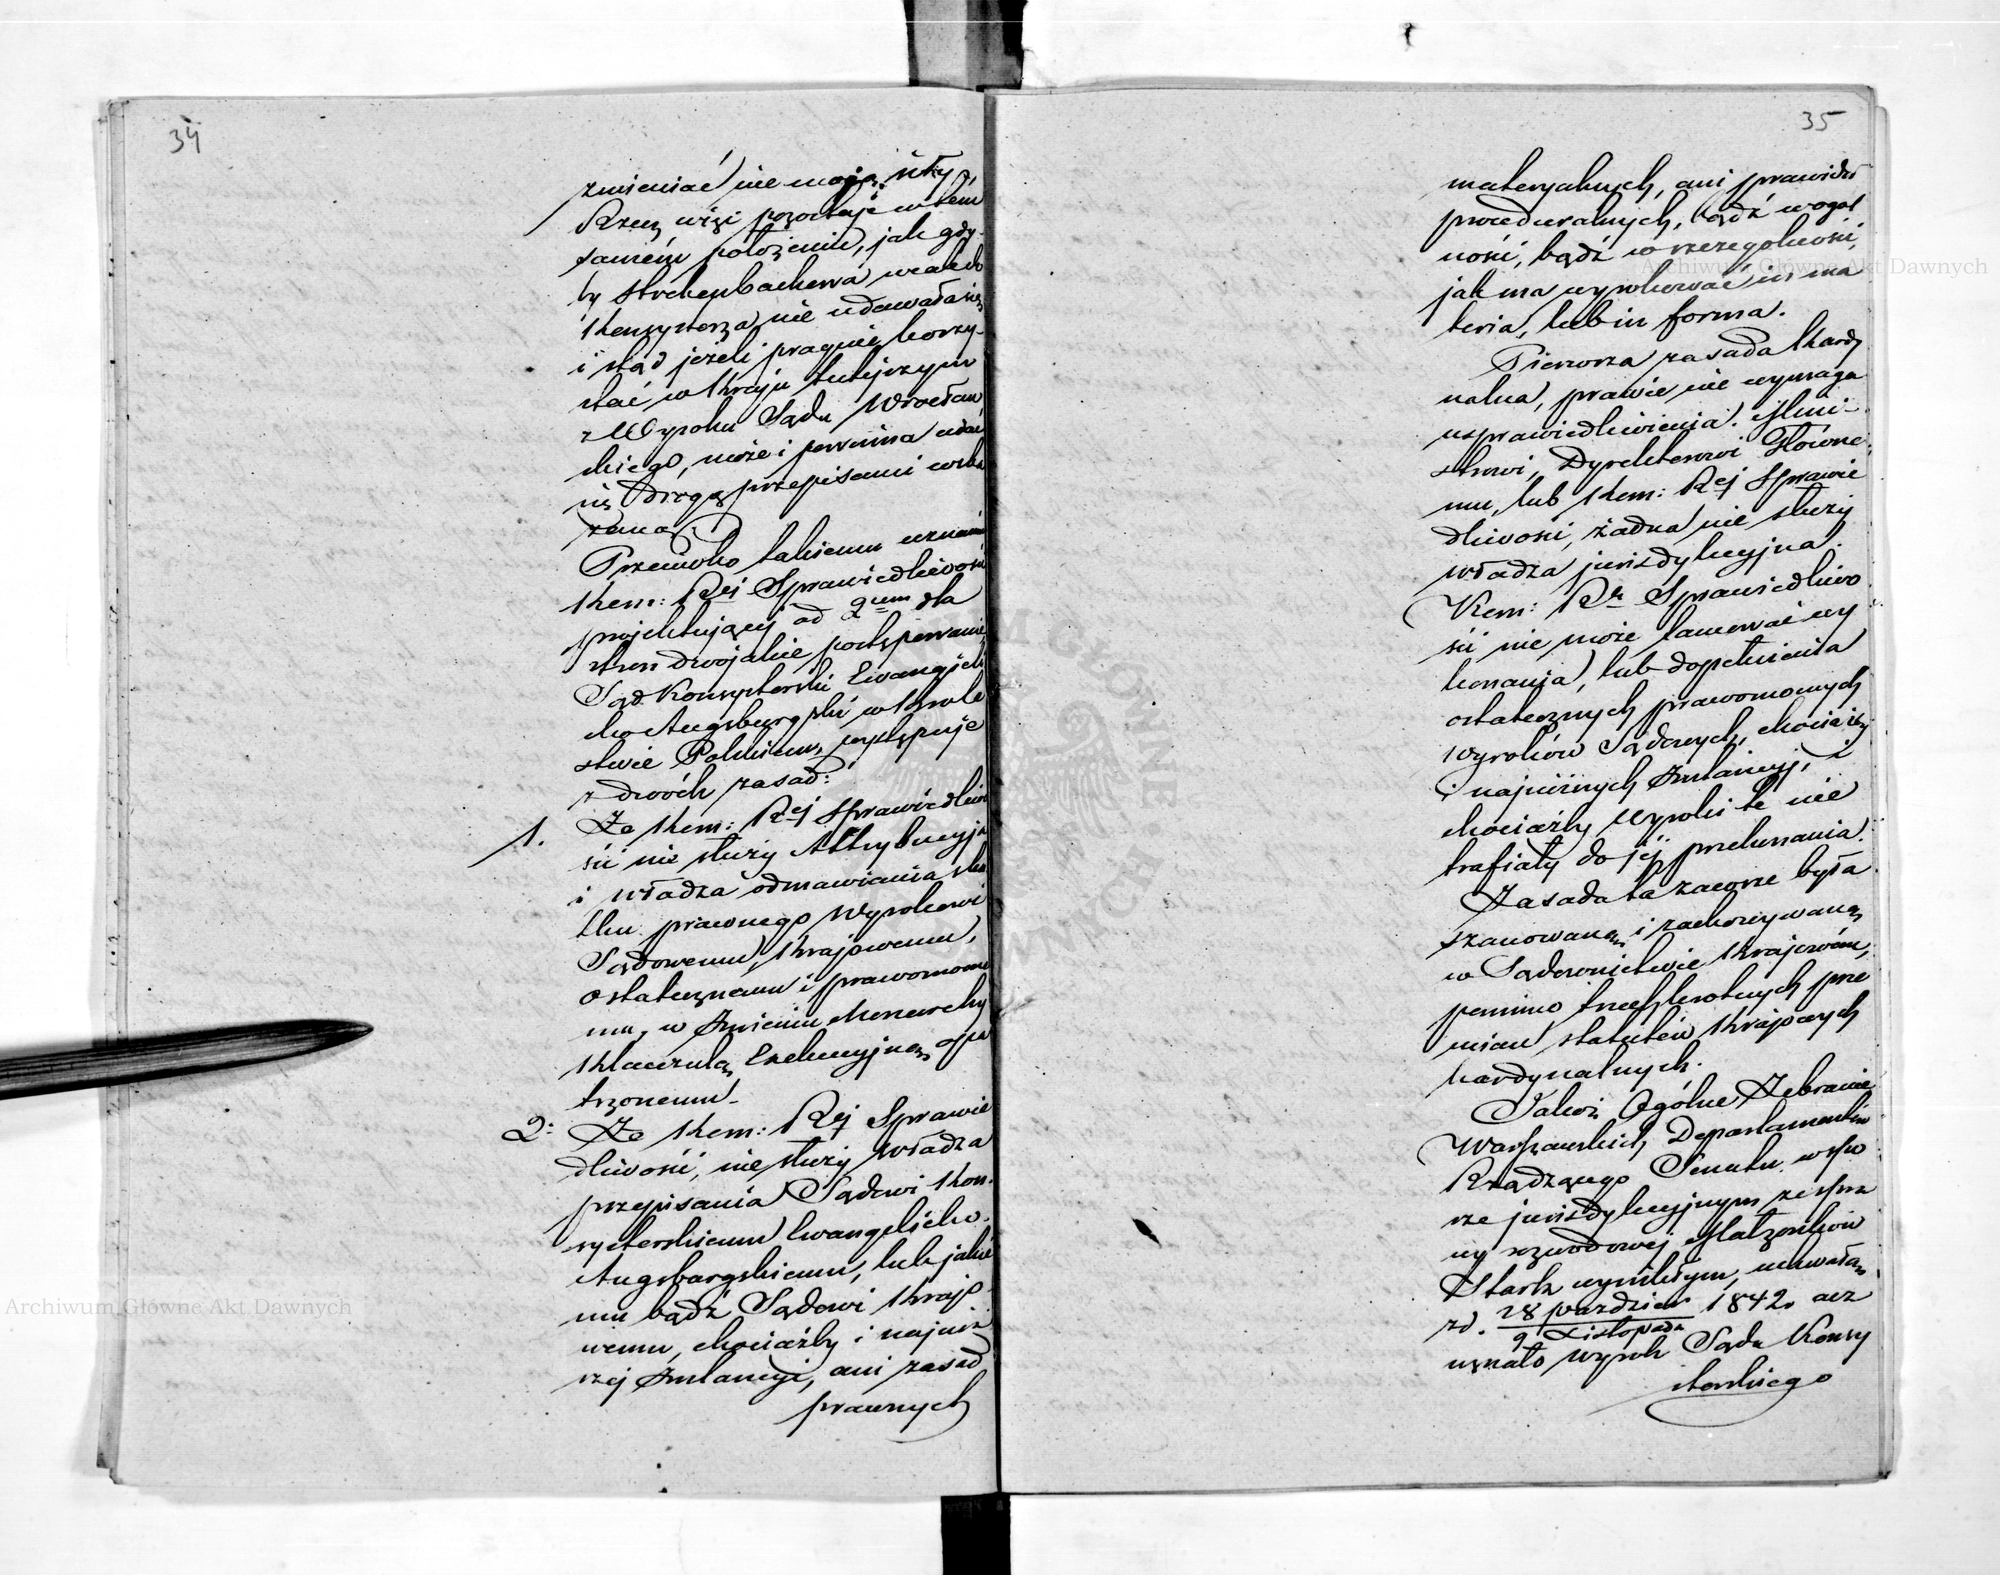 34
zmieniać nie mają siły,
Rzecz więc pozostaje w tem
samém położeniu, jak gdy-
by Strehenbachowa wcale do
Konsystorza nie udawała się
i stąd jeżeli pragnie korzy-
stać w Kraju tutejszym
z Wyroku Sądu Wrocław
skiego, może i powinna udać
się drogą przepisami wska
zaną.
Przeciwko takiemu uznaniu
Kom: Rej Sprawiedliwości
projektującej ad 2um dla
stron dwojakie postępowanie
Sąd Konsystorski Ewangielic
ko Augsburgski w Króle
stwie Polskiem, występuje
z dwóch zasad:
1. Że Kom: Rej Sprawiedliwo
ści nie służy Attrybucyja
i władza odmawiania sku
tku prawnego Wyrokowi
Sądowemu, Krajowemu,
ostatecznemu i prawomocne
mu, w Imieniu Monarchy
Klauzulą Exekucyjną opa
trzonemu.
2. Że Kom: Rej Sprawie
dliwości, nie służy władza
przepisania Sądowi Kon-
systorskiemu Ewangelicko-
Augsburgskiemu, lub jakie
mu bądź Sądowi Krajo
wemu, chociażby i najniż
szej Instancyi, ani zasad
prawnych
35
materyalnych, ani prawideł
proceduralnych, bądź w ogól
ności, bądź w szczególności,
jak ma wyrokować in ma
teria, lub in forma.
Pierwsza zasada Kardy
nalna, prawie nie wymaga
usprawiedliwienia. Mini-
strowi, Dyrektorowi Główne
mu, lub Kom: Rej Sprawie
dliwości, żadna nie służy
władza jurisdykcyjna.
Kom: Ra Sprawiedliwo
ści nie może tamować wy
konania, lub dopełnienia
ostatecznych prawomocnych
wyroków Sądowych, chociażby
i najniższych Instancyj, i
chociażby wyroki te nie
trafiały do jej przekonania.
Zasada ta zawsze była
szanowaną i zachowywaną
w Sądownictwie Krajowém,
pomimo trzechkrotnych prze
mian statutów Krajowych
kardynalnych.
Jakoż Ogólne Zebranie
Warszawskich Departamentów
Rządzącego Senatu w spo
rze jurisdykcyjnym ze spra
wy rozwodowej Małżonków
Stark wynikłym, uchwałą
zd. 28 pazdzier / 9 Listopada 1842 orz
uznało wyrok Sądu Konsy
storskiego
Archiwum Główne Akt Dawnych
Archiwum Główne Akt Dawnych